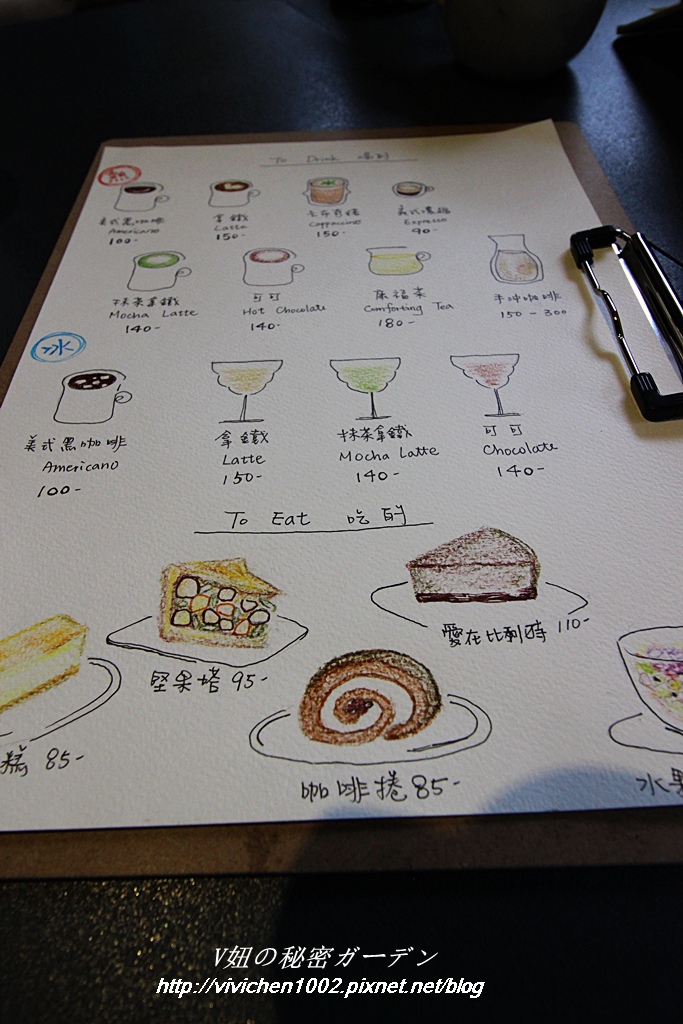 To Drink 喝的
熱
美式黑咖啡
Americano
100-
拿鐵
Latte
150-
卡布奇諾
Cappuccino
150-
美式濃縮
Espresso
90-
抹茶拿鐵
Mocha Latte
140-
可可
Hot Chocolate
140-
康福茶
Comforting Tea
180-
手沖咖啡
150-300
冰
美式黑咖啡
Americano
100-
拿鐵
Latte
150-
抹茶拿鐵
Mocha Latte
140-
可可
Chocolate
140-
To Eat 吃的
堅果塔 95-
愛在比利時 110-
糕 85-
咖啡捲 85-
水果
V妞の秘密ガーデン
http://vivichen1002.pixnet.net/blog